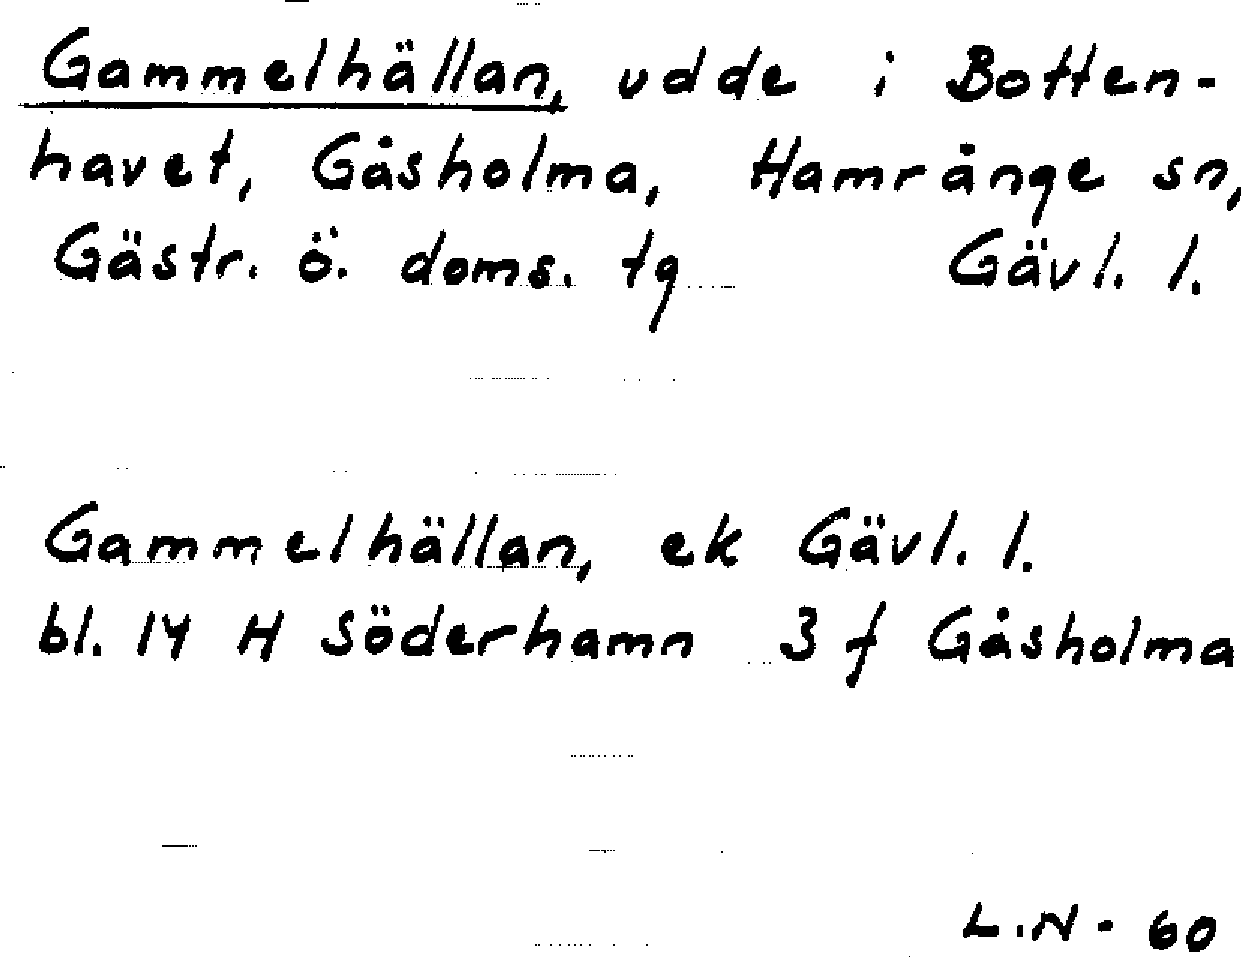 Gammelhällan, udde i Botten-
havet, Gåsholma, Hamrånge sn,
Gästr. ö. doms. tg Gävl. l.
Gammelhällan, ek Gävl. l.
bl. 14 H Söderhamn 3 f Gåsholma
L.N - 60